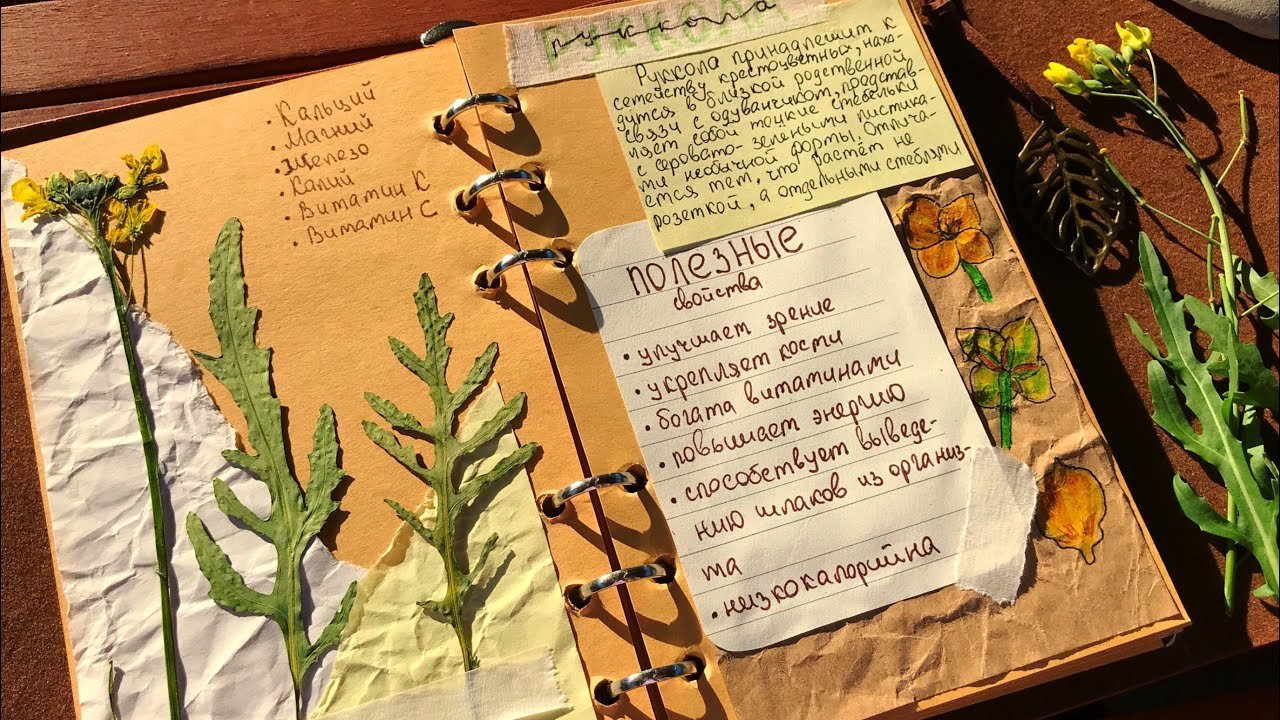 Кальций
Магний
Железо
Калий
Витамин К
Витамин С
РУККОЛА
руккола
Руккола принадлежит к
семейству крестоцветных, нахо-
дится в близкой родственной
связи с одуванчиком, представ-
ляет собой тонкие стебельки
с серовато-зелеными листика-
ми необычной формы. Отлича-
ется тем, что растёт не
розеткой, а отдельными стеблями
ПОЛЕЗНЫЕ
свойства
• улучшает зрение
• укрепляет кости
• богата витаминами
• повышает энергию
• способствует выведе-
нию шлаков из организ-
ма
• низкокалорийна